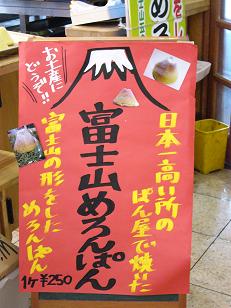 お土産に
どうぞ!!
日本一高い所の
ぱん屋で焼いた
富士山めろんぱん
富士山の形をした
めろんぱん
1ケ¥250